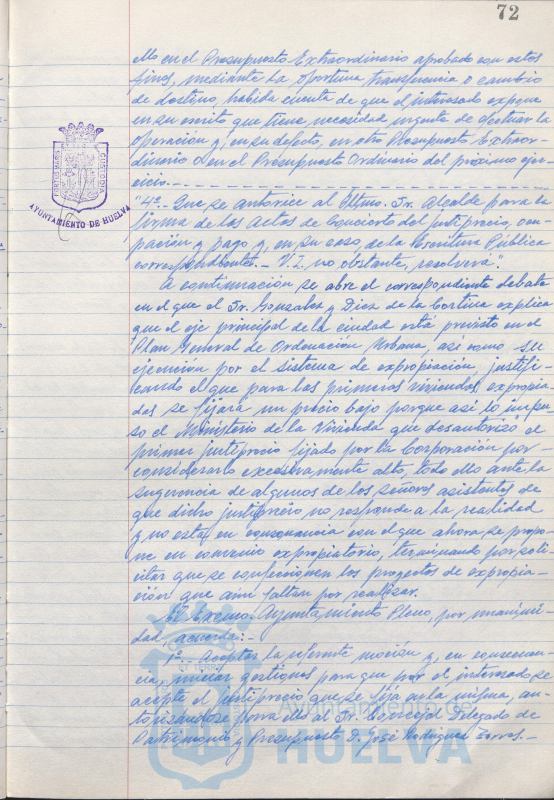 72
ello en el Presupuesto Extraordinario aprobado con estos
fines, mediante la oportuna transferencia o cambio
de destino, habida cuenta de que el interesado expone
en su escrito que tiene necesidad urgente de efectuar la
operación y, en su defecto, en otro Presupuesto Extraor-
dinario o en el Presupuesto Ordinario del próximo ejer-
cicio.-
"4º.- Que se autorice al Iltmo. Sr. Alcalde para la
firma de las Actas de Concierto del justiprecio, ocu-
pación y pago y, en su caso, de la Escritura Pública
correspondientes.- V.I. no obstante, resolverá".
A continuación se abre el correspondiente debate
en el que el Sr. González y Diez de la Cortina explica
que el eje principal de la ciudad está previsto en el
Plan General de Ordenación Urbana, así como su
ejecución por el sistema de expropiación, justifi-
cando el que para las primeras viviendas expropia-
das se fijara un precio bajo porque así lo impu-
so el Ministerio de la Vivienda que desautorizó el
primer justiprecio fijado por la Corporación por
considerarlo excesivamente alto, todo ello ante la
sugerencia de algunos de los señores asistentes de
que dicho justiprecio no responde a la realidad
y no está en consonancia con el que ahora se propo-
ne en convenio expropiatorio, terminando por soli-
citar que se confeccionen los proyectos de expropia-
ción que aún faltan por realizar.
El Excmo. Ayuntamiento Pleno, por unanimi-
dad, acuerda:-
1º.- Aceptar la referente moción y, en consecuen-
cia, iniciar gestiones para que por el interesado se
acepte el justiprecio que se fija en la misma, au-
torizándose para ello al Sr. Concejal Delegado de
Patrimonio y Presupuesto D. José Rodríguez Torres.-
PORTUS MARIS
CUSTODIA
AYUNTAMIENTO·DE·HUELVA
Ayuntamiento de
HUELVA